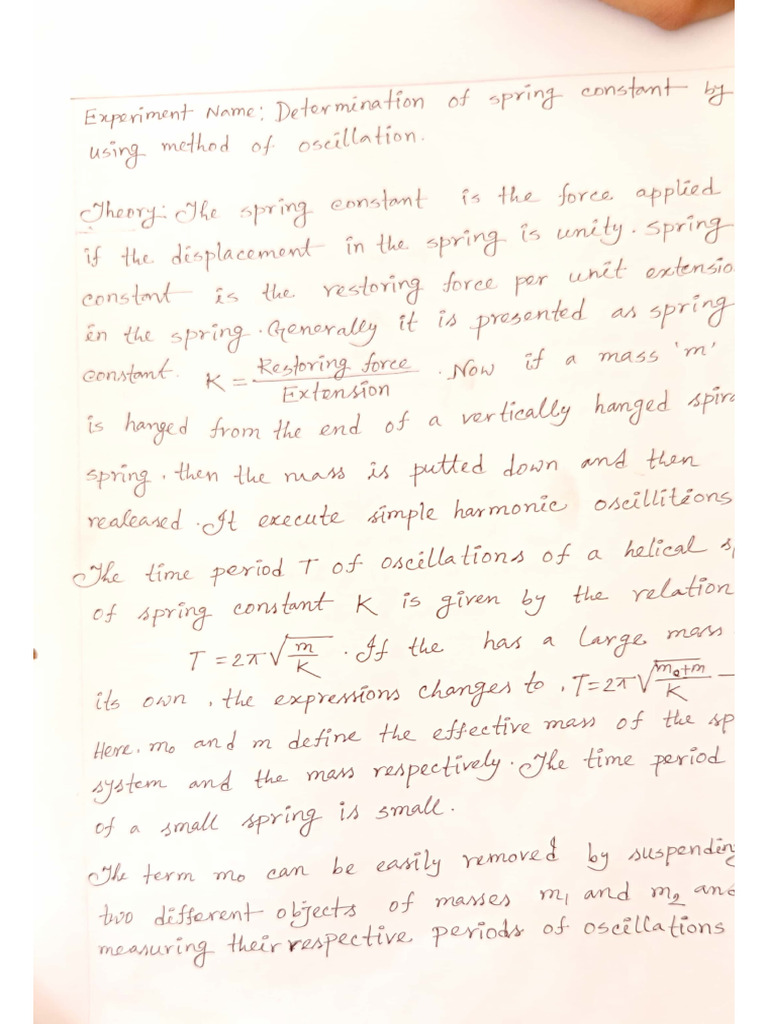 Experiment Name: Determination of spring constant by
using method of oscillation.
Theory: The spring constant is the force applied
if the displacement in the spring is unity. spring
constant is the restoring force per unit extensio
in the spring. Generally it is presented as spring
constant. K = Restoring force / Extension . Now if a mass 'm'
is hanged from the end of a vertically hanged spira
spring, then the mass is putted down and then
realeased. It execute simple harmonic oscillitions
The time period T of oscillations of a helical s
of spring constant K is given by the relation
T = 2π√(m/K) . If the has a large mass
its own, the expressions changes to, T = 2π√((m₀+m)/K) —
Here, m₀ and m define the effective mass of the sp
system and the mass respectively. The time period
of a small spring is small.
The term m₀ can be easily removed by suspending
two different objects of masses m₁ and m₂ and
measuring their respective periods of oscillations